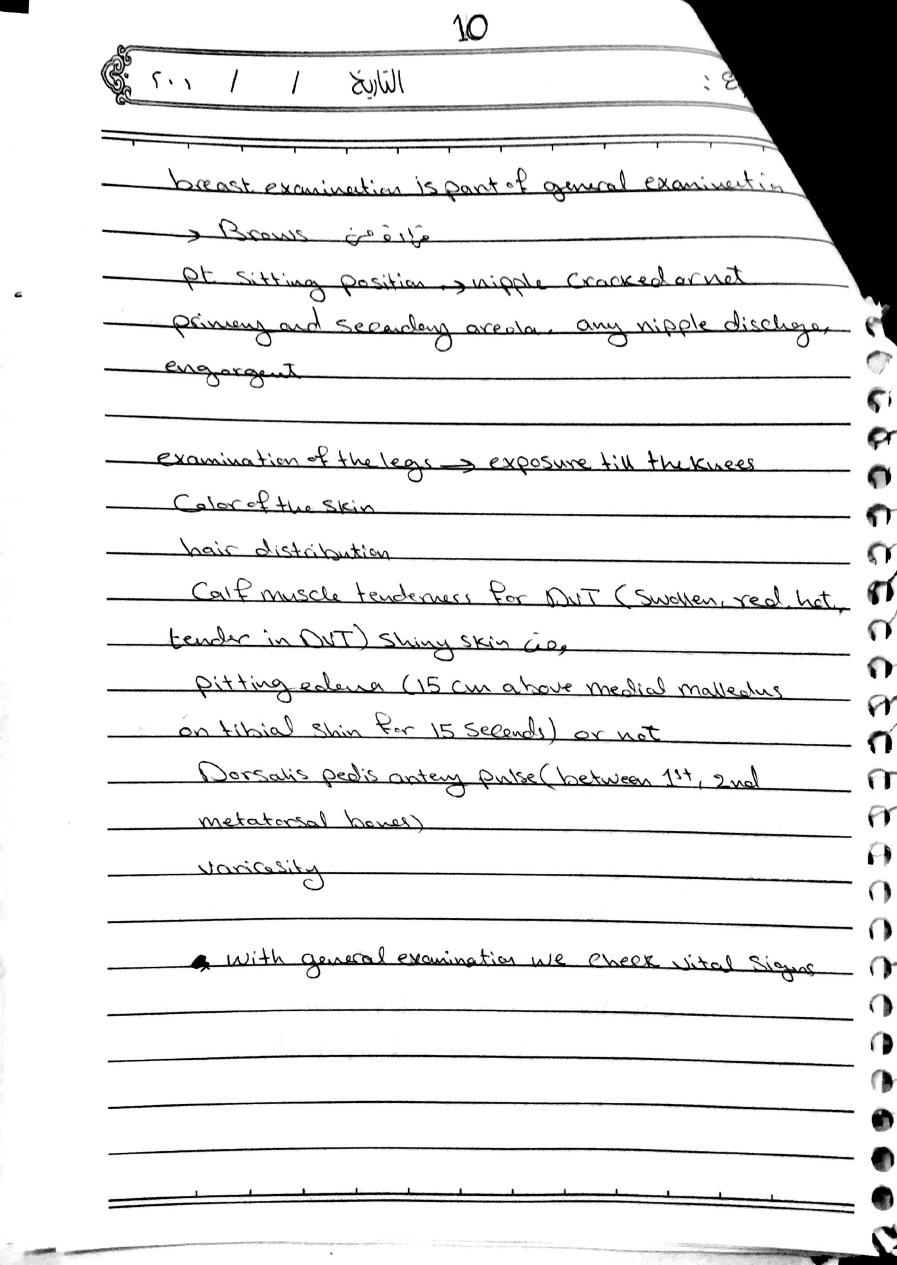 10
التاريخ / / ٢٠٠
breast examination is part of general examination
→ Brows
pt. sitting position → nipple cracked or not
primary and secondary areola. any nipple discharge,
engorgent
examination of the legs → exposure till the knees
Color of the skin
hair distribution
Calf muscle tenderness for DVT (swollen, red, hot,
tender in DVT) shiny skin
pitting edema (15 cm above medial malleolus
on tibial shin for 15 seconds) or not
Dorsalis pedis artery pulse (between 1st, 2nd
metatarsal bones)
varicosity
with general examination we check vital signs